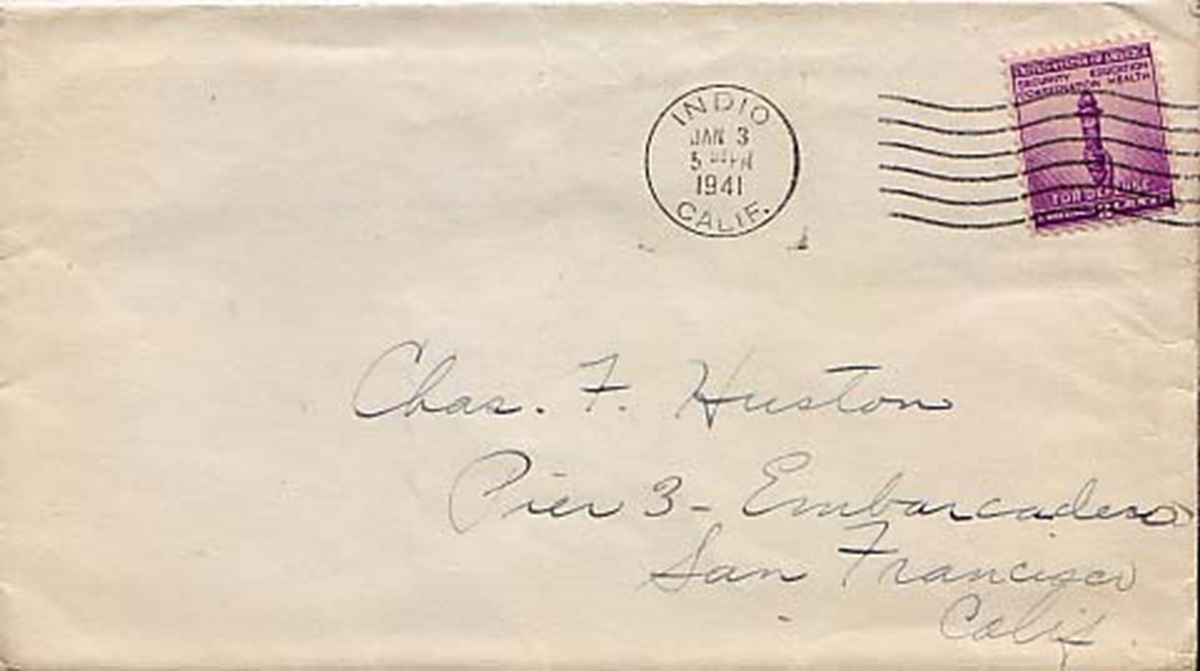 INDIO
JAN 3
5 PM
1941
CALIF.
UNITED STATES OF AMERICA
SECURITY EDUCATION
CONSERVATION HEALTH
FOR DEFENSE
Chas. F. Huston
Pier 3 - Embarcadero
San Francisco
Calif